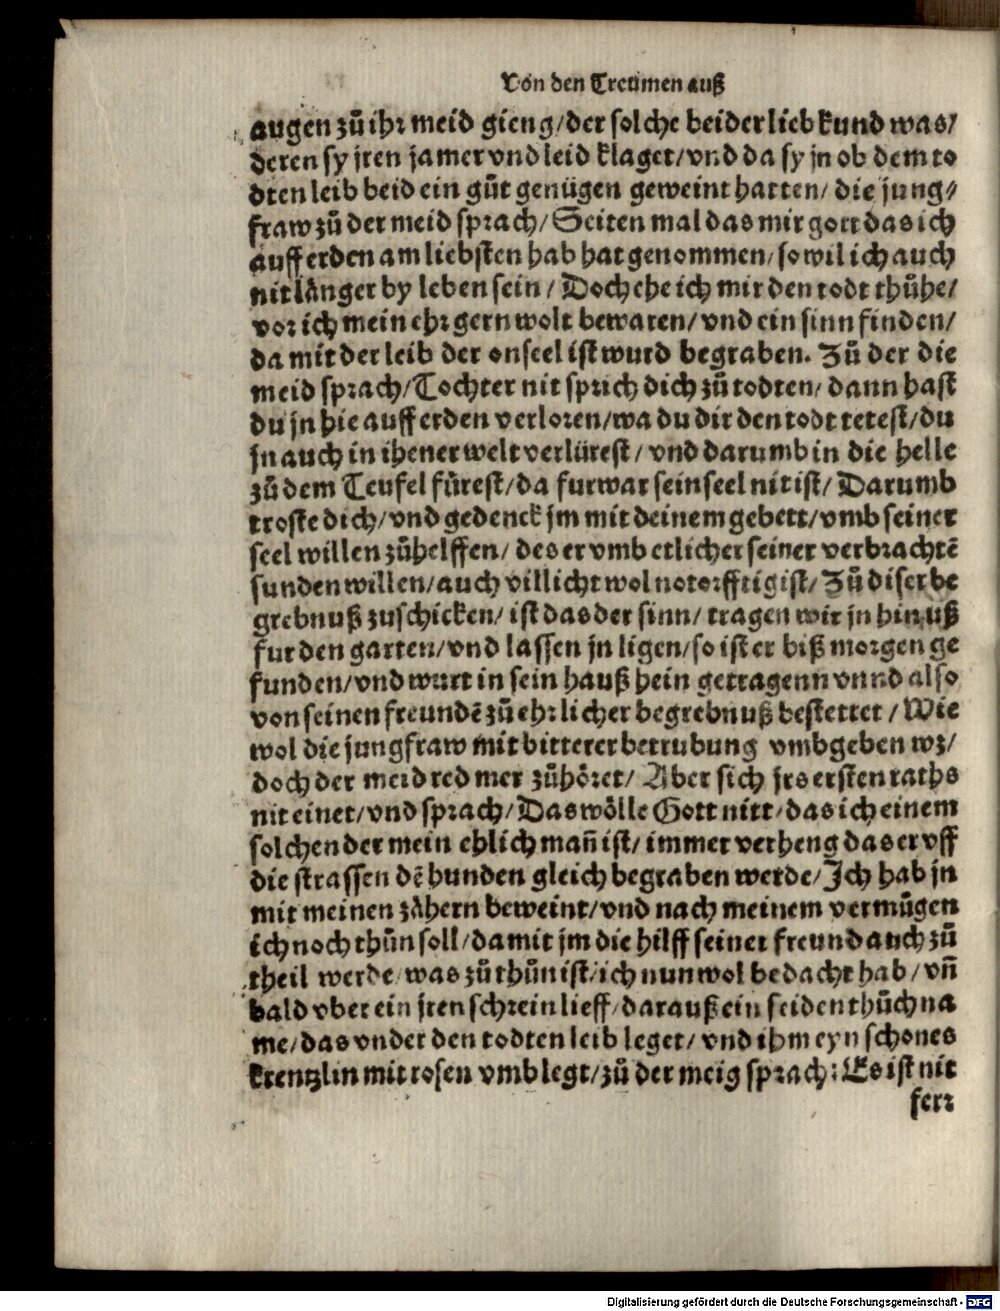 Von den Treümen auß
augen zů ihr meid gieng/der solche beider lieb kund was/
deren sy jren jamer vnd leid klaget/vnd da sy jn ob dem to
dten leib beid ein gůt genügen geweint hatten/ die jung⸗
fraw zů der meid sprach/Seiten mal das mir gott das ich
auff erden am liebsten hab hat genommen/so wil ich auch
nit länger by leben sein/ Doch ehe ich mir den todt thůhe/
vor ich mein ehr gern wolt bewaren/vnd ein sinn finden/
da mit der leib der onseel ist wurd begraben. Zů der die
meid sprach/Tochter nit sprich dich zů todten/dann hast
du jn hie auff erden verloren/wa du dir den todt tetest/du
jn auch in ihener welt verlürest/ vnd darumb in die helle
zů dem Teufel fürest/da furwar sein seel nit ist/ Darumb
troste dich/vnd gedenck jm mit deinem gebett/vmb seiner
seel willen zůhelffen/ des er vmb etlicher seiner verbrachtē
sunden willen/auch villicht wol notorfftig ist/ Zů diser be
grebnuß zuschicken/ ist das der sinn/ tragen wir jn hinuß
fur den garten/vnd lassen jn ligen/so ist er biß morgen ge
funden/vnd wurt in sein hauß hein getragenn vnnd also
von seinen freundē zů ehrlicher begrebnuß bestettet/ Wie
wol die jungfraw mit bitterer betrubung vmbgeben wz/
doch der meid red mer zůhöret/ Aber sich jrs ersten raths
nit einet/vnd sprach/Das wölle Gott nitt/das ich einem
solchen der mein ehlich mañ ist/immer verheng das er vff
die strassen dē hunden gleich begraben werde/Ich hab jn
mit meinen zähern beweint/vnd nach meinem vermügen
ich noch thůn soll/damit jm die hilff seiner freund auch zů
theil werde/was zů thůn ist/ich nun wol bedacht hab/vñ
bald vber ein jren schrein lieff/darauß ein seiden thůch na
me/das vnder den todten leib leget/ vnd ihm eyn schones
krentzlin mit rosen vmb legt/zů der meig sprach: Es ist nit
ferr
Digitalisierung gefördert durch die Deutsche Forschungsgemeinschaft - DFG